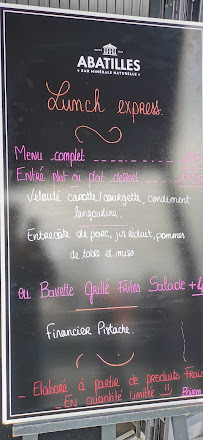 ABATILLES
EAU MINÉRALE NATURELLE
Lunch express
Menu complet
Entré plat ou plat dessert
Velouté carotte/courgette, condiment
langoustine.
Entrecôte de porc, jus réduit, pommes
de terre et miso
ou Bavette Grillé Frites Salade +4
Financier Pistache.
- Elaboré à partir de produits Frais
- En quantité limitée